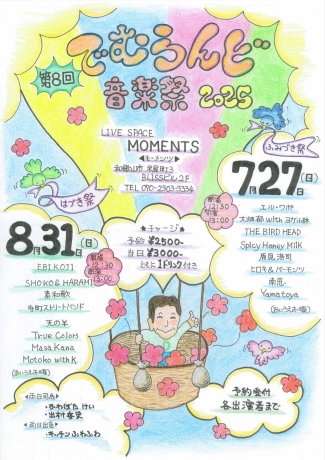 第8回
でむらんど
音楽祭 2025
LIVE SPACE
MOMENTS
◀モーメンツ▶
BLISSビル2F
TEL 070-2303-3334
ふみづき祭
7月27日(日)
開場12:30
開演13:00
エル・ワポ
THE BIRD HEAD
Spicy Honey Milk
眉見浩司
ヒロキ&パーモンツ
南忽
Yamatoya
(あいうえお順)
はづき祭
8月31日(日)
開場12:30
開演13:00
EBI KOJI
SHOKO & HARAMI
素和歌
寺町ストリートバンド
天の羊
True Colors
Masa Kana
Motoko with K
(あいうえお順)
★チャージ★
予約 ¥2500-
当日 ¥3000-
ともに1ドリンク付き
予約受付
各出演者まで
◀両日司会▶
・かわばた けい
◀両日出店▶
・キッチンふわふわ